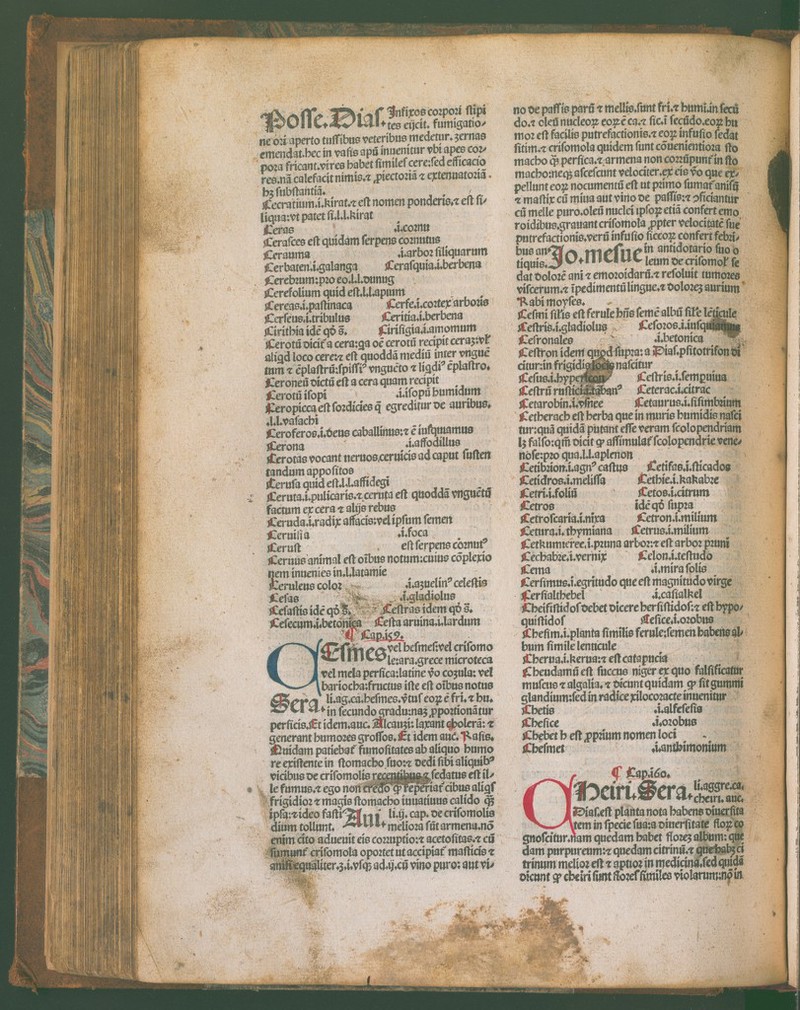 Posse. Dias. Infixos corpori stipi
tes eijcit. fumigatio-
ne ori aperto tussibus veteribus medetur. zernas
emendat. hec in vasis apũ inuenitur vbi apes cor-
pora fricant. vires habet similes cere: sed efficacio
res. nã calefacit nimis. ⁊ ꝓiectoriã ⁊ extenuatoriã.
hȝ substantiã.
Cecratium .i. kirat. ⁊ est nomen ponderis. ⁊ est si-
liqua: vt patet sͥ. l. l. kirat
Ceras .i. cornu
Cerasces est quidam serpens cornutus
Cerauma .i. arbor siliquarum
Cerbaten .i. galanga Cerasquia .i. berbena
Cerebrum: pro eo .l. l. dimug
Cerefolium quid est .l. l. apium
Cereas .i. pastinaca Cerse .i. cortex arboris
Cerseus .i. tribulus Ceritia .i. berbena
Cirithia idẽ qđ s̃. Cirisigia .i. amomum
Cerotũ dicit̃ a cera: qa oẽ cerotũ recipit ceraȝ: vl̃
aliqd loco cere: ⁊ est quoddã mediũ inter vnguẽ
tum ⁊ ẽplastrũ: spissiꝰ vnguẽto ⁊ liqdiꝰ ẽplastro.
Ceroneũ dictũ est a cera quam recipit
Cerotũ isopi .i. isopũ humidum
Ceropicca est sordicies q̃ egreditur de auribus.
.l. l. vasachi
Ceroferos .i. deus caballinus: ⁊ ẽ iusquiamus
Cerona .i. affodillus
Cerotas vocant neruos, ceruicis ad caput susten
tandum appositos
Cerusa quid est .l. l. affidegi
Ceruta .i. pulicaris. ⁊ ceruta est quoddã vnguẽtũ
factum ex cera ⁊ alijs rebus
Ceruda .i. radix affacis: vel ipsum semen
Ceruisia .i. foca
Cerust est serpens cornutꝰ
Ceruus animal est oĩbus notum: cuius cõplexio
nem inuenies in .l. latamie
Ceruleus color .i. azuelinꝰ celestis
Cesas .i. gladiolus
Cesastis idẽ qđ s̃. Cestras idem qđ s̃.
Cesecum .i. betonica Cesta aruina .i. lardum
¶ Cap. 159.
CEsmes vel hesmes: vel crisomo
le: ara. grece microteca
vel mela persica: latine ṽo cozula: vel
bariocha: fructus iste est oĩbus notus
Sera. li. ag. ca. hesmes. ṽtus̃ eoȝ ẽ fri. ⁊ hu.
in secundo gradu: naȝ ꝓportionãtur
persicis. Et idem. auc. Alcanzi: laxant cholerã: ⁊
generant humores grossos. Et idem auc̃. Rasis.
Quidam patiebat̃ fumositates ab aliquo humo
re existente in stomacho suo: ⁊ dedi sibi aliquibꝰ
vicibus de crisomolis recentibus ⁊ sedatus est il-
le fumus. ⁊ ego non credo ꝙ reperiat̃ cibus aliqs̃
frigidior ⁊ magis stomacho iuuatiuus calido q̃ȝ
ipsa: ⁊ ideo fasti
dium tollunt. Aui. li. ij. cap. de crisomolis
meliora sũt armena. nõ
enim cito adueuit eis corruptio: ⁊ acetositas. ⁊ cũ
sumunt̃ crisomola oportet ut accipiat̃ masticis ⁊
anisi equaliter. ȝ. i. vsqȝ ad. ij. cũ vino puro: aut vi-
no de passis parũ ⁊ mellis. sunt fri. ⁊ humi. in secũ
do. ⁊ oleũ nucleoȝ eoȝ ẽ ca. ⁊ sic. ĩ secũdo. eoȝ hu
mor est facilis putrefactionis. ⁊ eoȝ infusio sedat
sitim. ⁊ crisomola quidem sunt cõuenientiora sto
macho q̃ȝ persica. ⁊ armena non corrũpunt̃ in sto
macho: neqȝ ascescunt velociter. ex eis ṽo que ex-
pellunt eoȝ nocumentũ est ut primo sumat̃ anisũ
⁊ mastix cũ mina aut vino de passis: ⁊ ꝯficiantur
cũ melle puro. oleũ nuclei ipsoȝ etiã confert emo
roidibus. grauant crisomola ꝓpter velocitatẽ sue
putrefactionis. verũ infusio siccoȝ confert febri-
bus an-
tiquis. Jo. mesue in antidotario suo o
leum de crisomol̃ se
dat dolorẽ ani ⁊ emoroidarũ. ⁊ resoluit tumores
viscerum. ⁊ ĩpedimentũ lingue. ⁊ dolores aurium
Rabi moyses.
Cesmi silis est ferule hñs semẽ albũ sil̃e lẽticule
Cestris .i. gladiolus Cesoros .i. iusquiamus
Cesronales .i. betonica
Cestron idem quod supra: a Dias. psitotrifon di
citur: in frigidis locis nascitur
Cesus .i. hypericon Cestris .i. sempuiua
Cestrũ Ceterac .i. citrac
Cetarobin .i. Cetaurus .i. sisimbrium
Cetherach est herba que in muris humidis nasci
tur: quã quidã putant esse veram scolopendriam
lȝ falso: qm̃ dicit ꝙ assimulat̃ scolopendrie vene-
nose: pro qua .l. l. aplenon
Cetibrion .i. agnꝰ castus Cetisas .i. sticados
Cetidros .i. melissa Cethie .i. kakabȝe
Cetri .i. foliũ Cetos .i. citrum
Cetros idẽ qđ supra
Cetroscaria .i. nixa Cetron .i. milium
Cetura .i. thymiana Cetrus .i. milium
Cetkumicree .i. pruna arbor: ⁊ est arbor pruni
Cechabȝe .i. vernix Celon .i. testudo
Cema .i. mira solis
Cersimus .i. egritudo que est magnitudo virge
Cersialthebel .i. casialkel
Cheisistidos debet dicere hersistidos: ⁊ est hypo-
quistidos Cesice .i. orobus
Chesim .i. planta similis ferule: semen habens al-
bum simile lenticule
Cherua .i. kerua: ⁊ est catapucia
Chendamũ est succus niger ex quo falsificatur
muscus ⁊ algalia. ⁊ dicunt quidam ꝙ sit gummi
glandium: sed in radice xilocoracte inuenitur
Chetis .i. alfesesis
Chesice .i. orobus
Chebet h est ꝓprium nomen loci
Chesmet .i. anthimonium
¶ Cap. 160.
CHeiri. Sera. li. aggre. ca.
cheiri. auc.
Dias. est planta nota habens diuersita
tem in specie sua: a diuersitate floȝ co
gnoscitur. nam quedam habet flores album: que
dam purpureum: ⁊ quedam citrinũ. ⁊ que habȝ ci
trinum melior est ⁊ aptior in medicina. sed quidã
dicunt ꝙ cheiri sunt flores similes violarum: nõ in